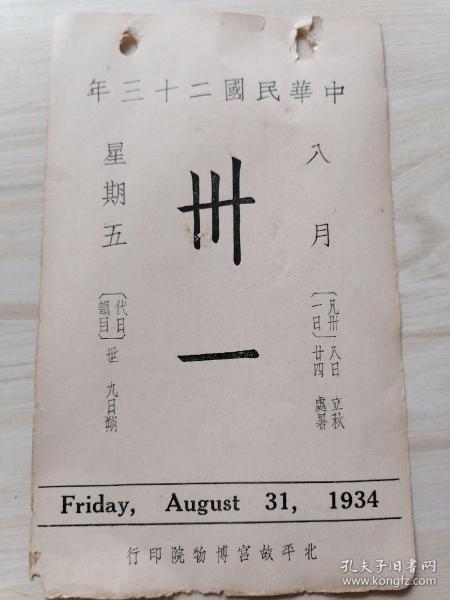 中華民國二十三年
八月
〔凡卅
一日〕
八日 立秋
廿四 處暑
卅一
星期五
〔代日
韻目〕
世 九日朔
Friday, August 31, 1934
北平故宮博物院印行
孔夫子旧书网
www.kongfz.com